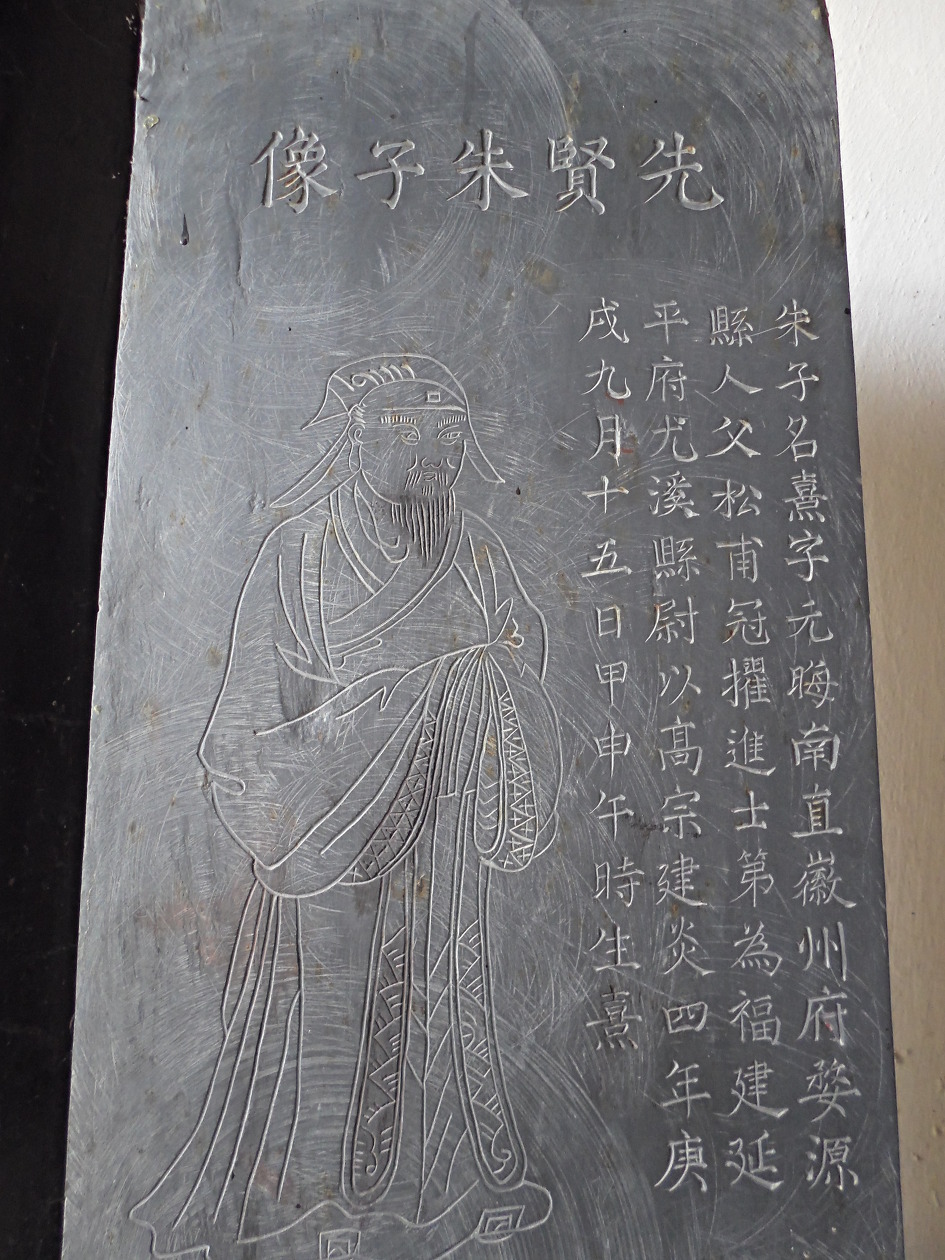 先賢朱子像
朱子名熹字元晦南直徽州府婺源
縣人父松甫冠擢進士第為福建延
平府尤溪縣尉以高宗建炎四年庚
戌九月十五日甲申午時生熹